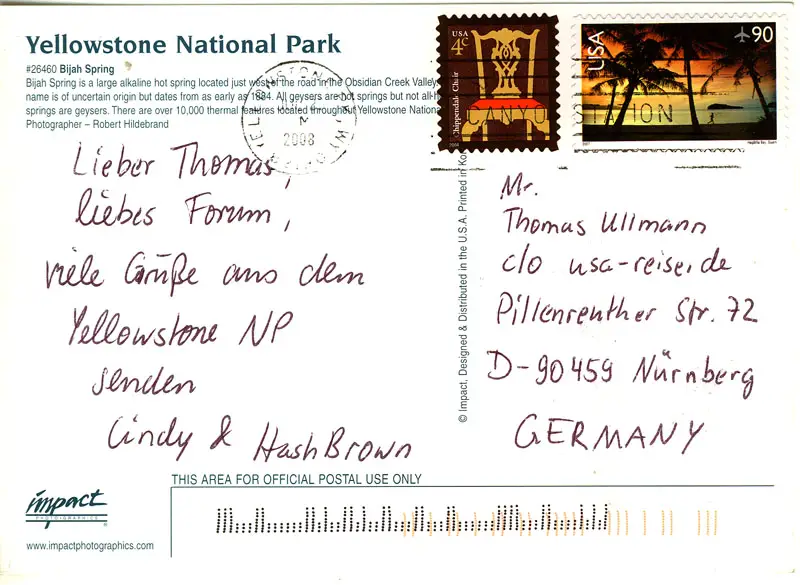 Yellowstone National Park
#26460 Bijah Spring
Bijah Spring is a large alkaline hot spring located just west of the road in the Obsidian Creek Valley.
name is of uncertain origin but dates from as early as 1884. All geysers are hot springs but not all
springs are geysers. There are over 10,000 thermal features located throughout Yellowstone
Photographer – Robert Hildebrand
USA
4c
Chippendale Chair
2004
USA
90
2007
YELLOWSTONE
WY
2008
CANYON STATION
Lieber Thomas,
liebes Forum,
viele Grüße aus dem
Yellowstone NP
senden
Cindy & HashBrown
© Impact, Designed & Distributed in the U.S.A. Printed in
Mr.
Thomas Ullmann
c/o usa-reise.de
Pillenreuther Str. 72
D-90459 Nürnberg
GERMANY
THIS AREA FOR OFFICIAL POSTAL USE ONLY
impact
PHOTOGRAPHICS
www.impactphotographics.com